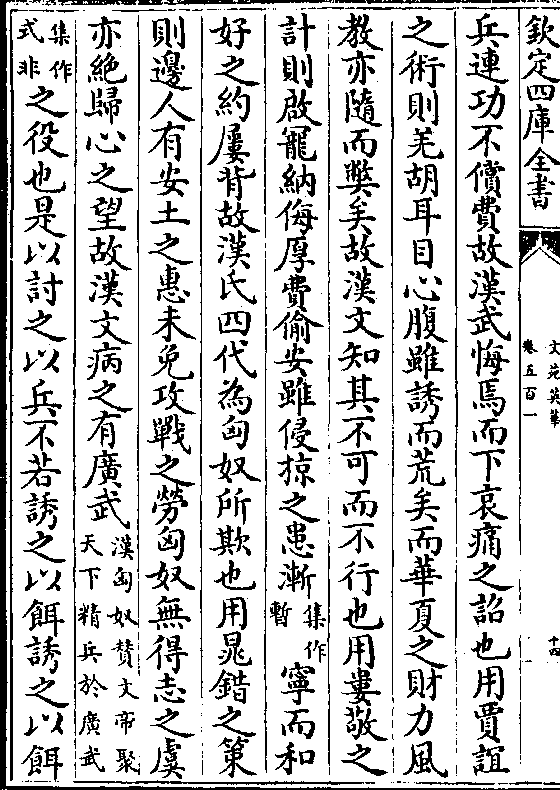 欽定四庫全書
文苑英華
卷五百一
十四
兵連功不償費故漢武悔焉而下哀痛之詔也用賈誼
之術則羌胡耳目心腹雖誘而荒矣而華夏之財力風
教亦隨而弊矣故漢文知其不可而不行也用婁敬之
計則啟寵納侮厚費偷安雖侵掠之患漸集作暫寧而和
好之約屢背故漢氏四代為匈奴所欺也用晁錯之策
則邊人有安土之惠未免攻戰之勞匈奴無得志之虞
亦絶歸心之望故漢文病之有廣武漢匈奴賛文帝聚天下精兵於廣武
集作式非之役也是以討之以兵不若誘之以餌誘之以餌